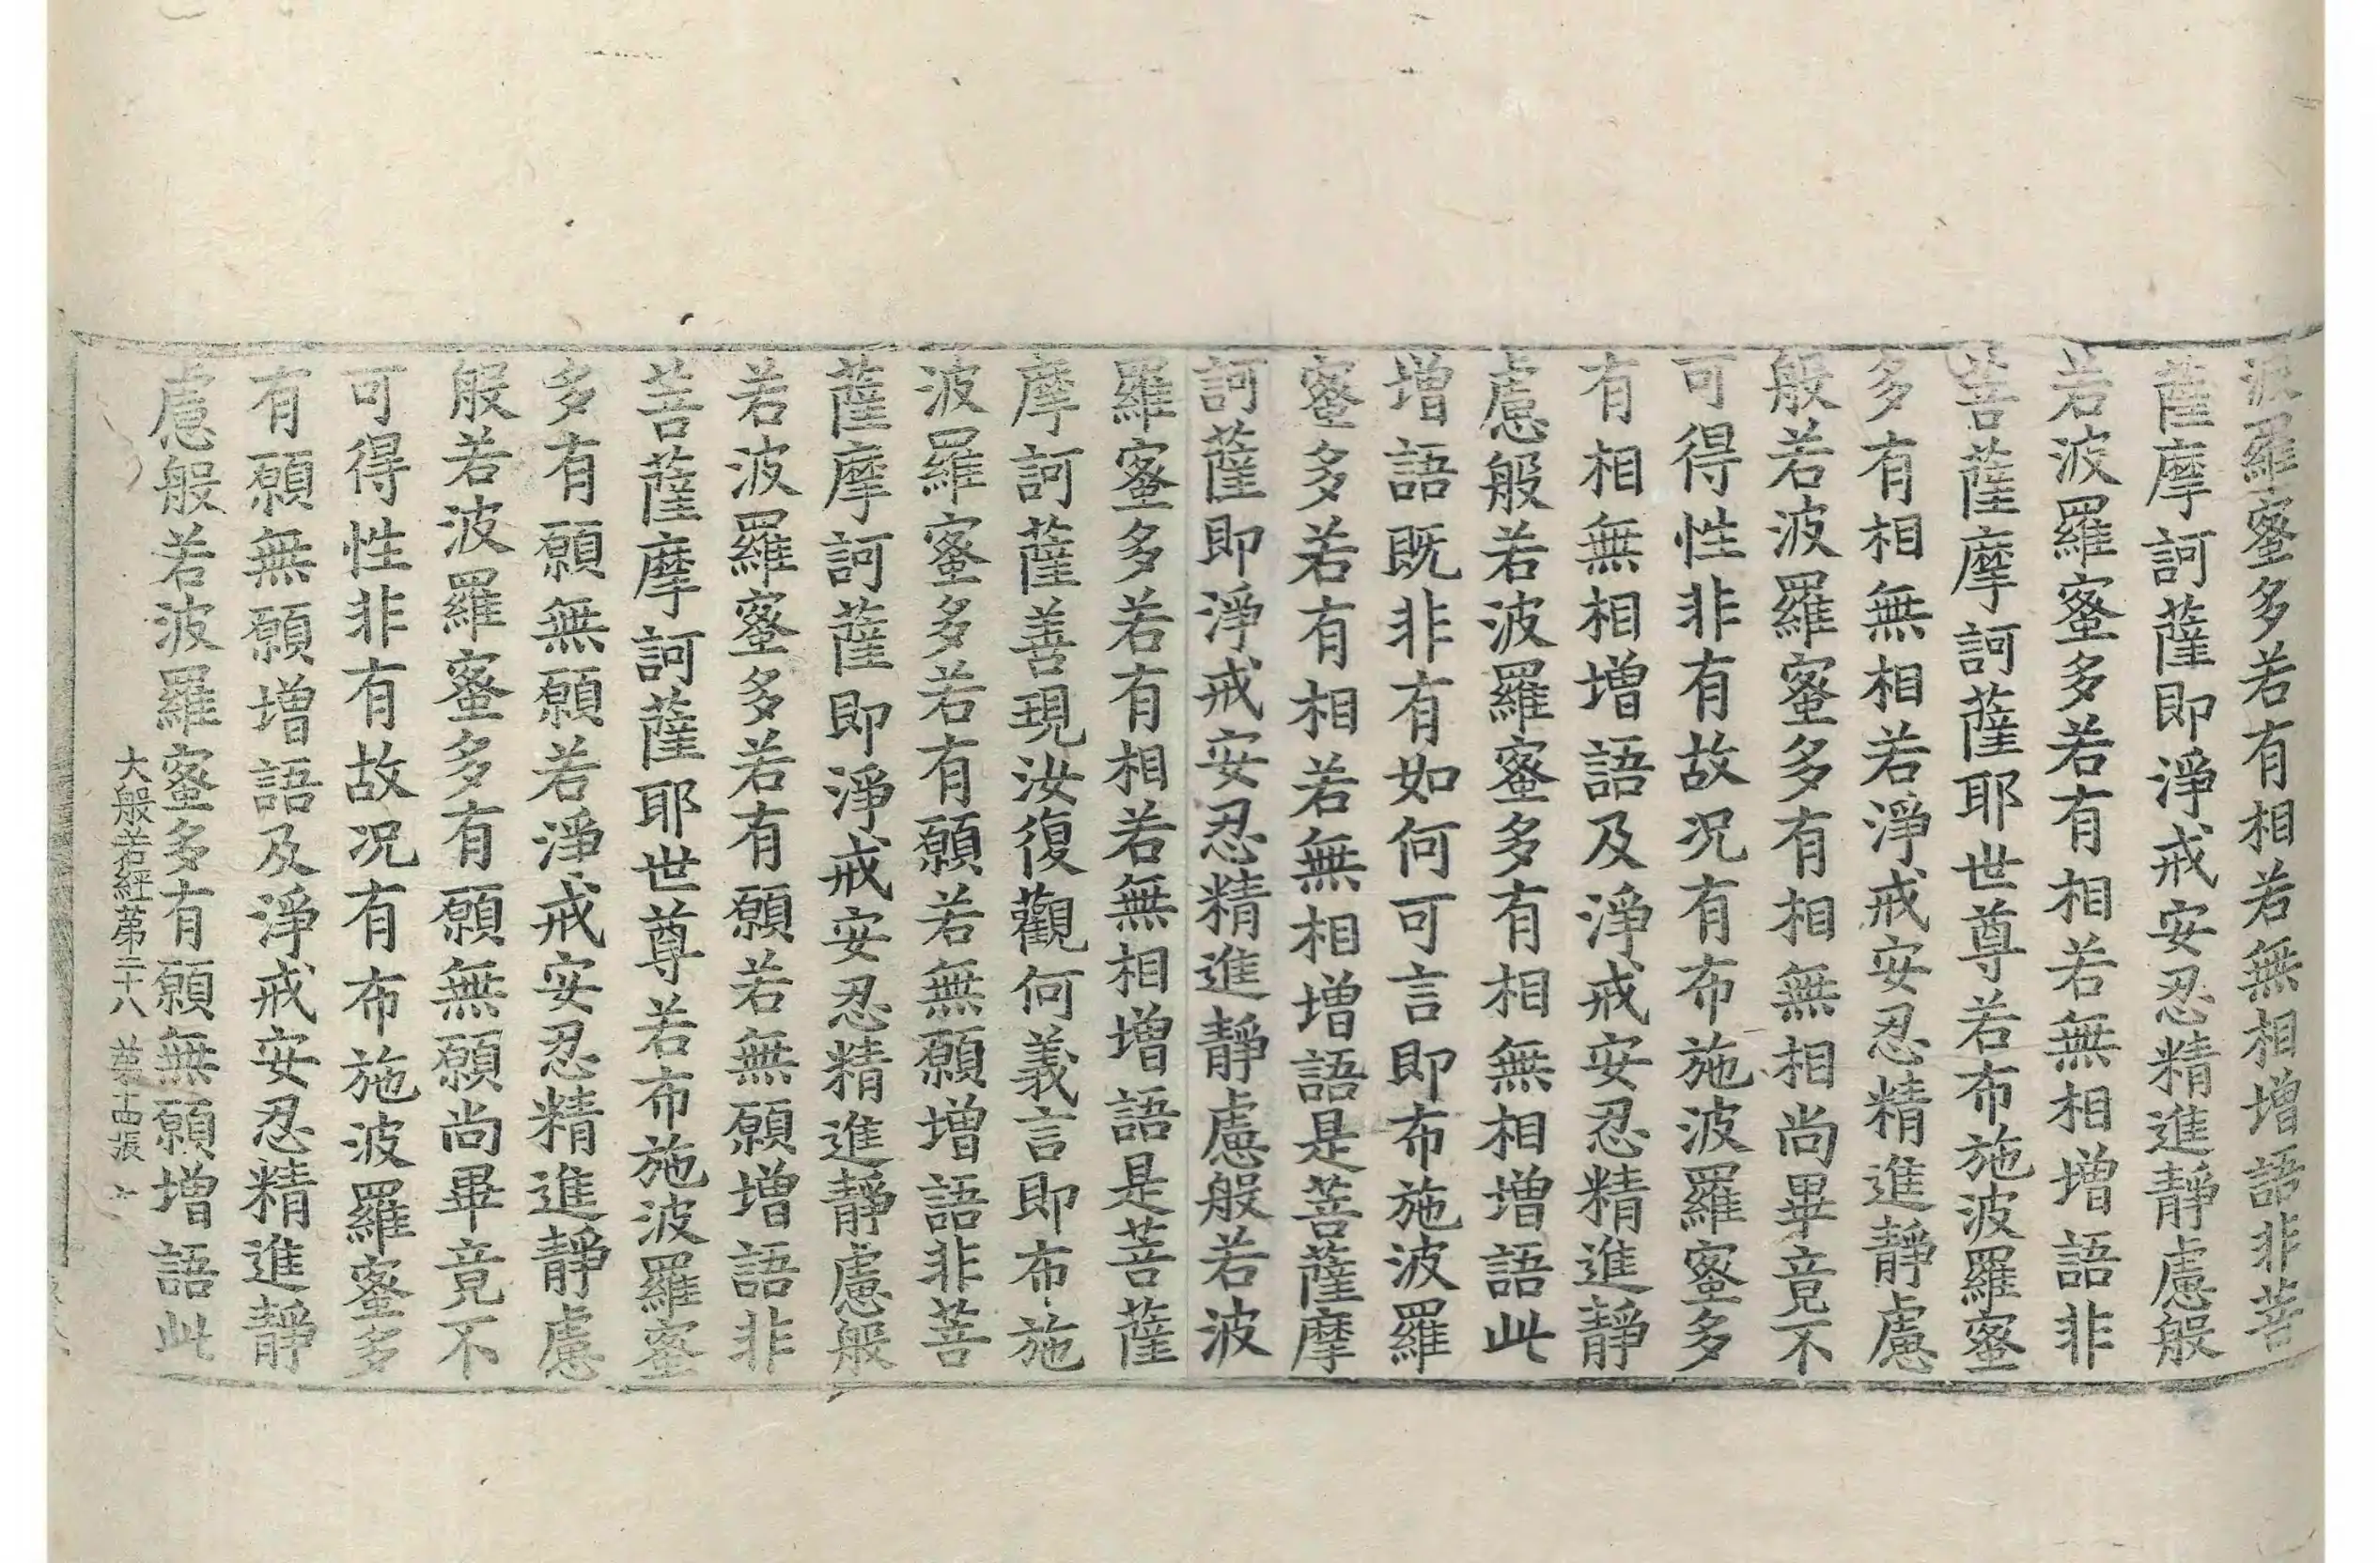 波羅蜜多若有相若無相增語非菩
薩摩訶薩即淨戒安忍精進靜慮般
若波羅蜜多若有相若無相增語非
菩薩摩訶薩耶世尊若布施波羅蜜
多有相無相若淨戒安忍精進靜慮
般若波羅蜜多有相無相尚畢竟不
可得性非有故况有布施波羅蜜多
有相無相增語及淨戒安忍精進靜
慮般若波羅蜜多有相無相增語此
增語既非有如何可言即布施波羅
蜜多若有相若無相增語是菩薩摩
訶薩即淨戒安忍精進靜慮般若波
羅蜜多若有相若無相增語是菩薩
摩訶薩善現汝復觀何義言即布施
波羅蜜多若有願若無願增語非菩
薩摩訶薩即淨戒安忍精進靜慮般
若波羅蜜多若有願若無願增語非
菩薩摩訶薩耶世尊若布施波羅蜜
多有願無願若淨戒安忍精進靜慮
般若波羅蜜多有願無願尚畢竟不
可得性非有故况有布施波羅蜜多
有願無願增語及淨戒安忍精進靜
慮般若波羅蜜多有願無願增語此
大般若經第二十八 第十四張